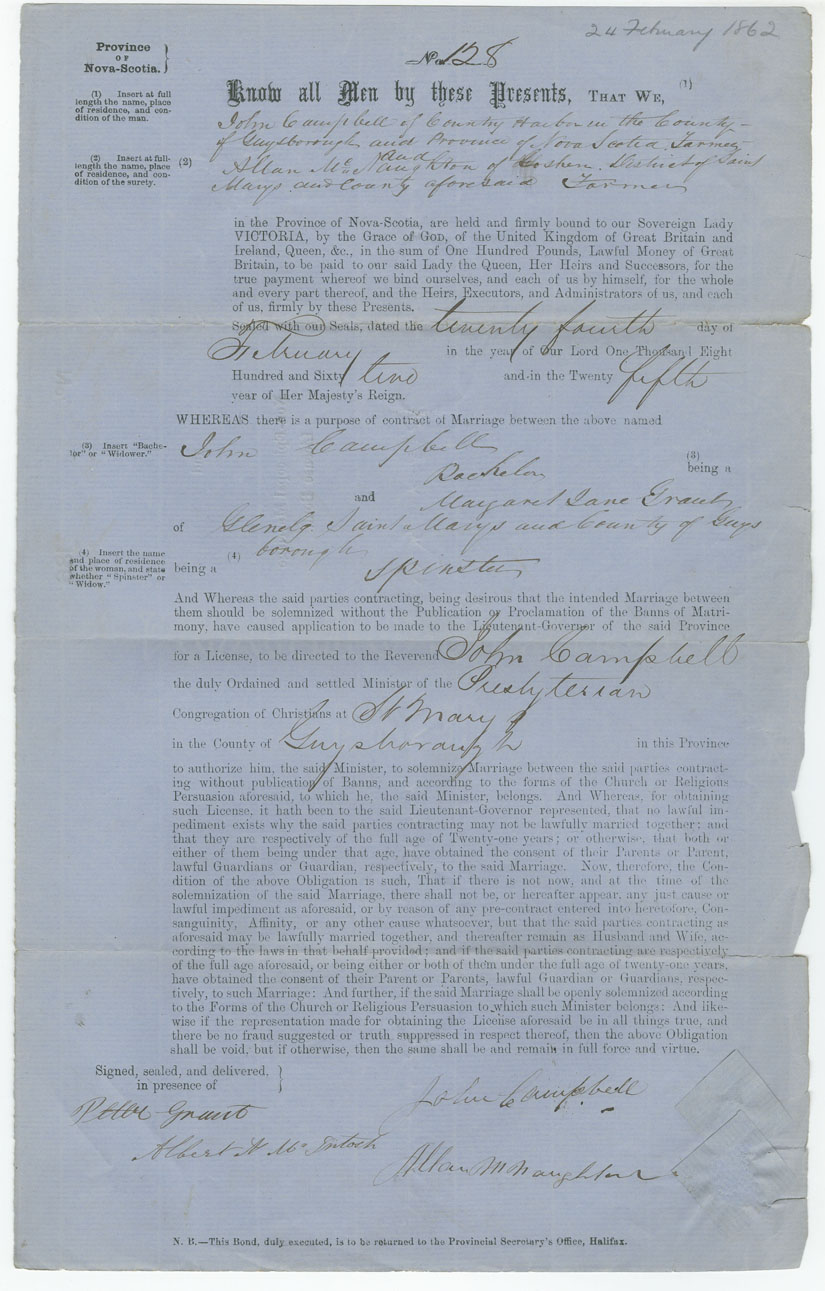 24 February 1862
Province
OF
Nova-Scotia.
No. 128
(1) Insert at full
length the name, place
of residence, and con-
dition of the man.
Know all Men by these Presents, THAT WE, (1)
John Campbell of Country Harbor in the County
of Guysborough and Province of Nova Scotia Farmer
and
(2) Insert at full-
length the name, place
of residence, and con-
dition of the surety.
(2) Allan McNaughton of Goshen District of Saint
Marys and County aforesaid Farmer
in the Province of Nova-Scotia, are held and firmly bound to our Sovereign Lady
VICTORIA, by the Grace of GOD, of the United Kingdom of Great Britain and
Ireland, Queen, &c., in the sum of One Hundred Pounds, Lawful Money of Great
Britain, to be paid to our said Lady the Queen, Her Heirs and Successors, for the
true payment whereof we bind ourselves, and each of us by himself, for the whole
and every part thereof, and the Heirs, Executors, and Administrators of us, and each
of us, firmly by these Presents.
Sealed with our Seals, dated the twenty fourth day of
February in the year of Our Lord One Thousand Eight
Hundred and Sixty two and in the Twenty fifth
year of Her Majesty's Reign.
WHEREAS there is a purpose of contract of Marriage between the above named
(3) Insert "Bache-
lor" or "Widower."
John Campbell
(3)
being a
Bachelor
and Margaret Jane Grant
of Glenelg Saint Marys and County of Guys
borough
(4) Insert the name
and place of residence
of the woman, and state
whether "Spinster" or
"Widow."
(4)
being a Spinster
And Whereas the said parties contracting, being desirous that the intended Marriage between
them should be solemnized without the Publication or Proclamation of the Banns of Matri-
mony, have caused application to be made to the Lieutenant-Governor of the said Province
for a License, to be directed to the Reverend John Campbell
the duly Ordained and settled Minister of the Presbyterian
Congregation of Christians at St Marys
in the County of Guysborough in this Province
to authorize him, the said Minister, to solemnize Marriage between the said parties contract-
ing without publication of Banns, and according to the forms of the Church or Religious
Persuasion aforesaid, to which he, the said Minister, belongs. And Whereas, for obtaining
such License, it hath been to the said Lieutenant-Governor represented, that no lawful im-
pediment exists why the said parties contracting may not be lawfully married together; and
that they are respectively of the full age of Twenty-one years; or otherwise, that both or
either of them being under that age, have obtained the consent of their Parents or Parent,
lawful Guardians or Guardian, respectively, to the said Marriage. Now, therefore, the Con-
dition of the above Obligation is such, That if there is not now, and at the time of the
solemnization of the said Marriage, there shall not be, or hereafter appear, any just cause or
lawful impediment as aforesaid, or by reason of any pre-contract entered into heretofore, Con-
sanguinity, Affinity, or any other cause whatsoever, but that the said parties contracting as
aforesaid may be lawfully married together, and thereafter remain as Husband and Wife, ac-
cording to the laws in that behalf provided; and if the said parties contracting are respectively
of the full age aforesaid, or being either or both of them under the full age of twenty-one years,
have obtained the consent of their Parent or Parents, lawful Guardian or Guardians, respec-
tively, to such Marriage: And further, if the said Marriage shall be openly solemnized according
to the Forms of the Church or Religious Persuasion to which such Minister belongs: And like-
wise if the representation made for obtaining the License aforesaid be in all things true, and
there be no fraud suggested or truth suppressed in respect thereof, then the above Obligation
shall be void, but if otherwise, then the same shall be and remain in full force and virtue.
Signed, sealed, and delivered,
in presence of
Peter Grant
John Campbell
Albert N McIntosh
Allan McNaughton
N. B.—This Bond, duly executed, is to be returned to the Provincial Secretary's Office, Halifax.